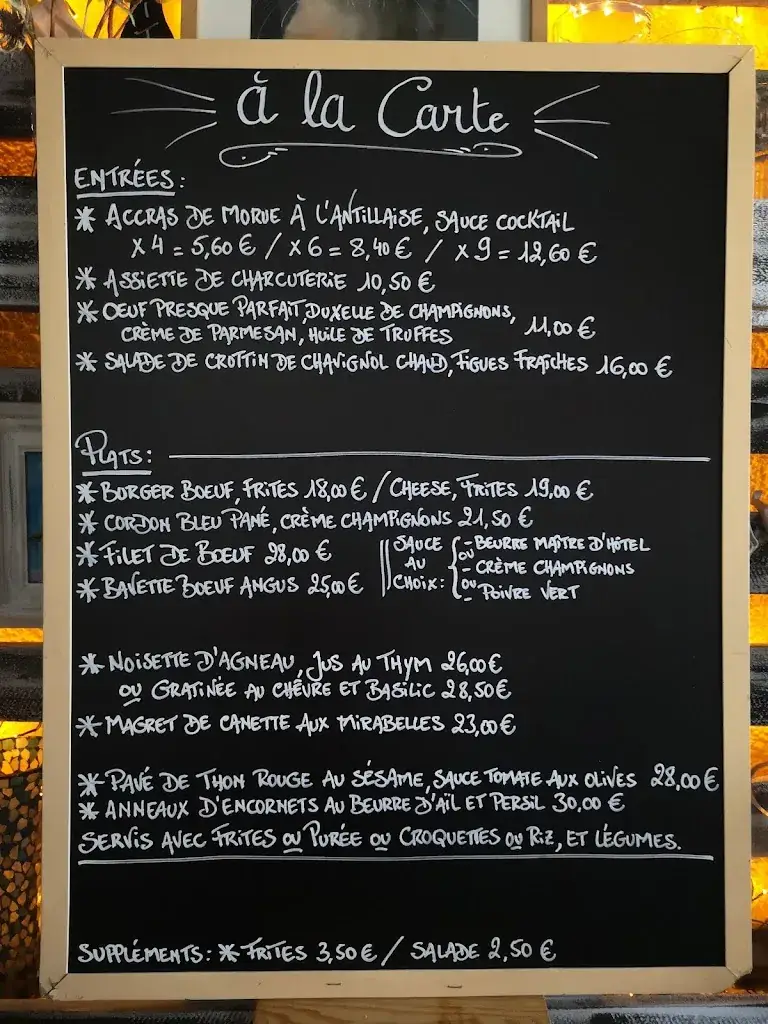 à la Carte
ENTRÉES :
* ACCRAS DE MORUE À L'ANTILLAISE, SAUCE COCKTAIL
X 4 = 5,60 € / X 6 = 8,40 € / X 9 = 12,60 €
* ASSIETTE DE CHARCUTERIE 10,50 €
* OEUF PRESQUE PARFAIT, DUXELLE DE CHAMPIGNONS,
CRÈME DE PARMESAN, HUILE DE TRUFFES 11,00 €
* SALADE DE CROTTIN DE CHAVIGNOL CHAUD, FIGUES FRAÎCHES 16,00 €
PLATS :
* BURGER BOEUF, FRITES 18,00 € / CHEESE, FRITES 19,00 €
* CORDON BLEU PANÉ, CRÈME CHAMPIGNONS 21,50 €
* FILET DE BOEUF 28,00 €
* BAVETTE BOEUF ANGUS 25,00 €
SAUCE AU CHOIX :
- BEURRE MAÎTRE D'HÔTEL
OU
- CRÈME CHAMPIGNONS
OU
- POIVRE VERT
* NOISETTE D'AGNEAU, JUS AU THYM 26,00 €
OU GRATINÉE AU CHÈVRE ET BASILIC 28,50 €
* MAGRET DE CANETTE AUX MIRABELLES 23,00 €
* PAVÉ DE THON ROUGE AU SÉSAME, SAUCE TOMATE AUX OLIVES 28,00 €
* ANNEAUX D'ENCORNETS AU BEURRE D'AÏL ET PERSIL 30,00 €
SERVIS AVEC FRITES OU PURÉE OU CROQUETTES OU RIZ, ET LÉGUMES.
SUPPLÉMENTS : * FRITES 3,50 € / SALADE 2,50 €